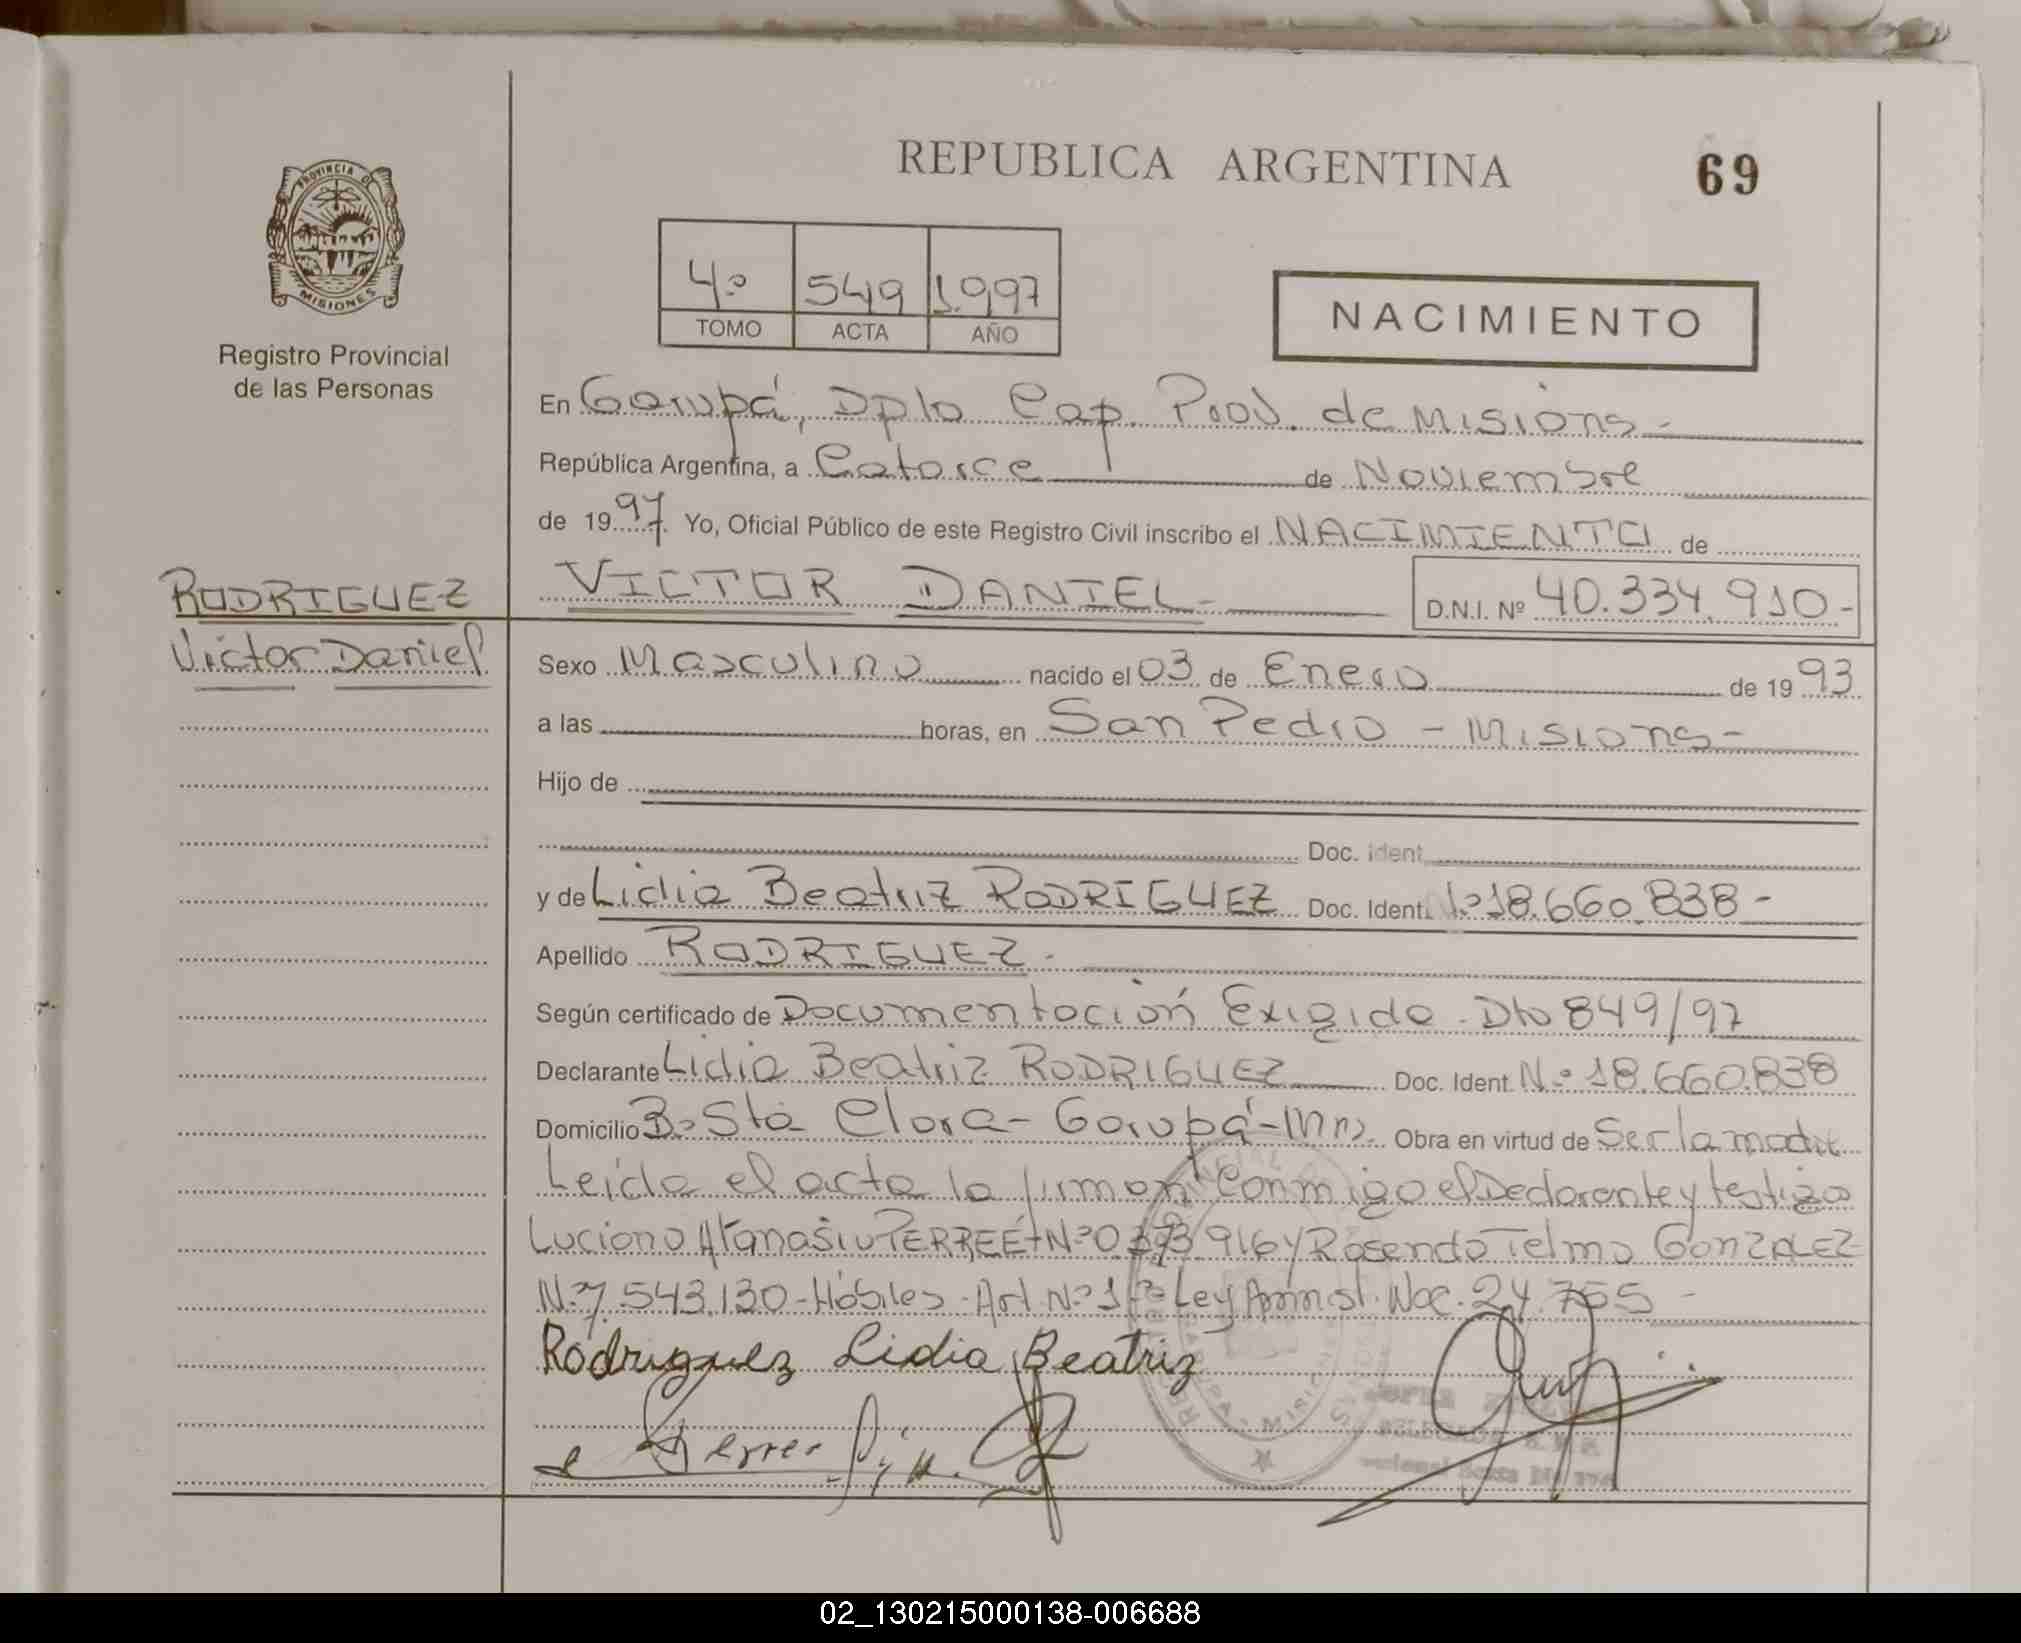 REPUBLICA ARGENTINA
69
PROVINCIA DE
MISIONES
Registro Provincial
de las Personas
4º 549 1997
TOMO ACTA AÑO
NACIMIENTO
En Garupá, Dpto Cap. Prov. de Misions -
República Argentina, a Catorce de Noviembre
de 1997. Yo, Oficial Público de este Registro Civil inscribo el NACIMIENTO de
RODRIGUEZ
Victor Daniel
VICTOR DANIEL - D.N.I. Nº 40.334.910-
Sexo Masculino nacido el 03 de Enero de 1993
a las horas, en San Pedro - Misions -
Hijo de
Doc. ident
y de Lidia Beatriz RODRIGUEZ Doc. Ident. Nº 18.660.838 -
Apellido RODRIGUEZ -
Según certificado de Documentación Exigida - Dto 849/97
Declarante Lidia Beatriz RODRIGUEZ Doc. Ident. Nº 18.660.838
Domicilio Bº Sta Clara - Garupá - Mns. Obra en virtud de Ser la madre
Leída el acta la firman Conmigo el Declarante y testigos
Luciano Atanasio PERREÉ Nº y Rosendo Telmo GONZALEZ
Nº 7.543.130 - Hábiles - Art. Nº 1 Ley Amnist. Nac. 24.755 -
Rodriguez Lidia Beatriz
02_130215000138-006688